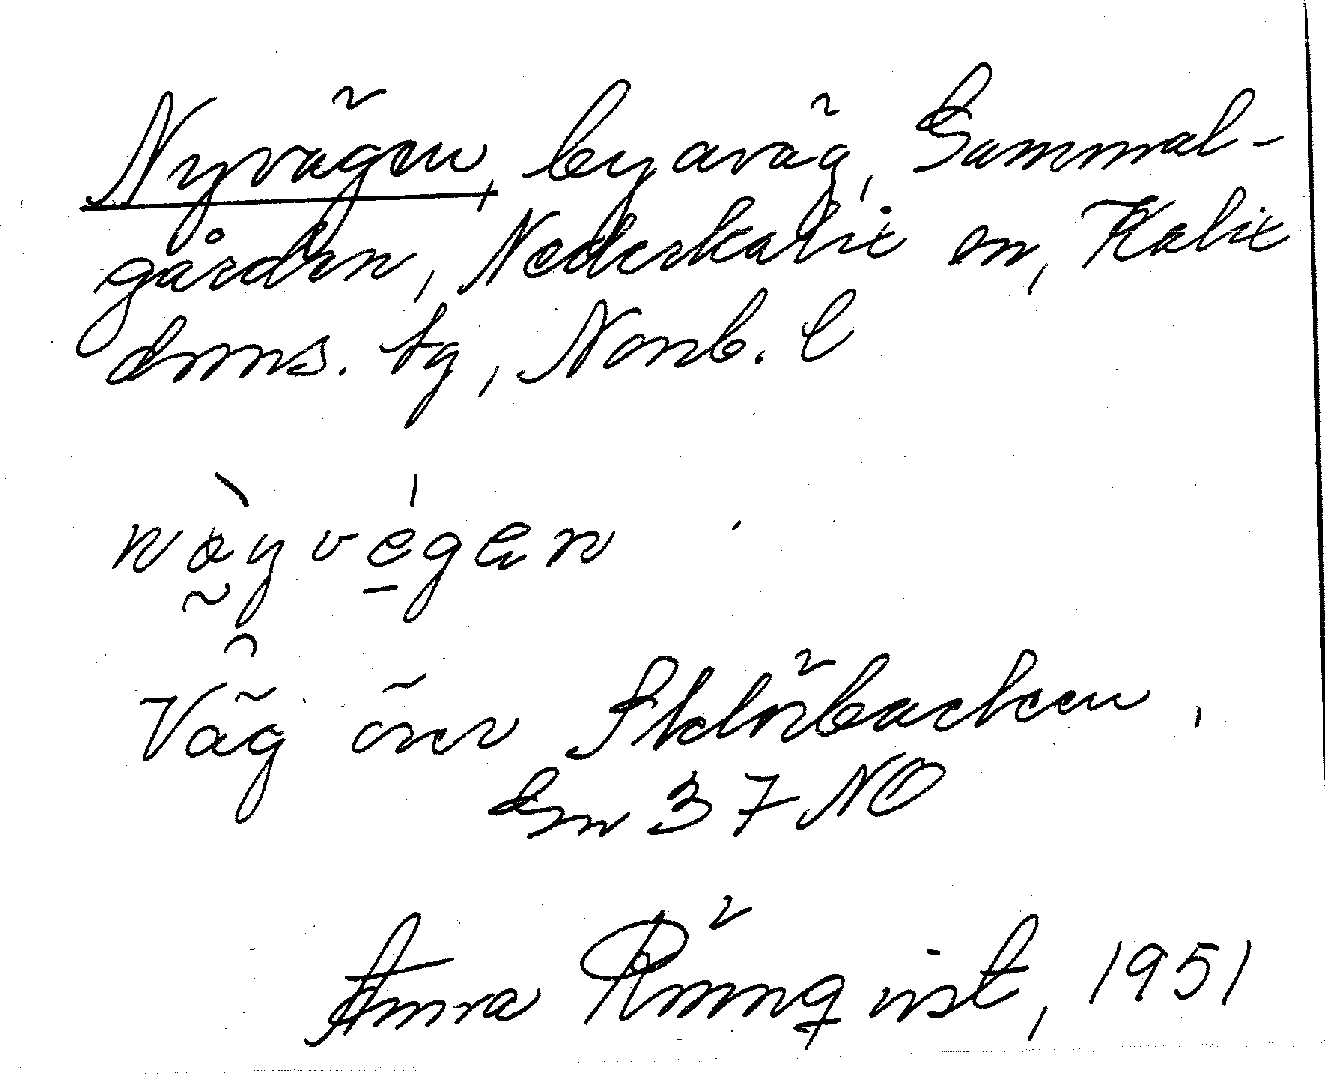 Nyvägen, byaväg, Gammal-
gården, Nederkalix sn, Kalix
doms. tg, Norrb. l
nø̀yvégen
Väg över Sklörbacken,
Sn 37 NO
Anna Rönnqvist, 1951